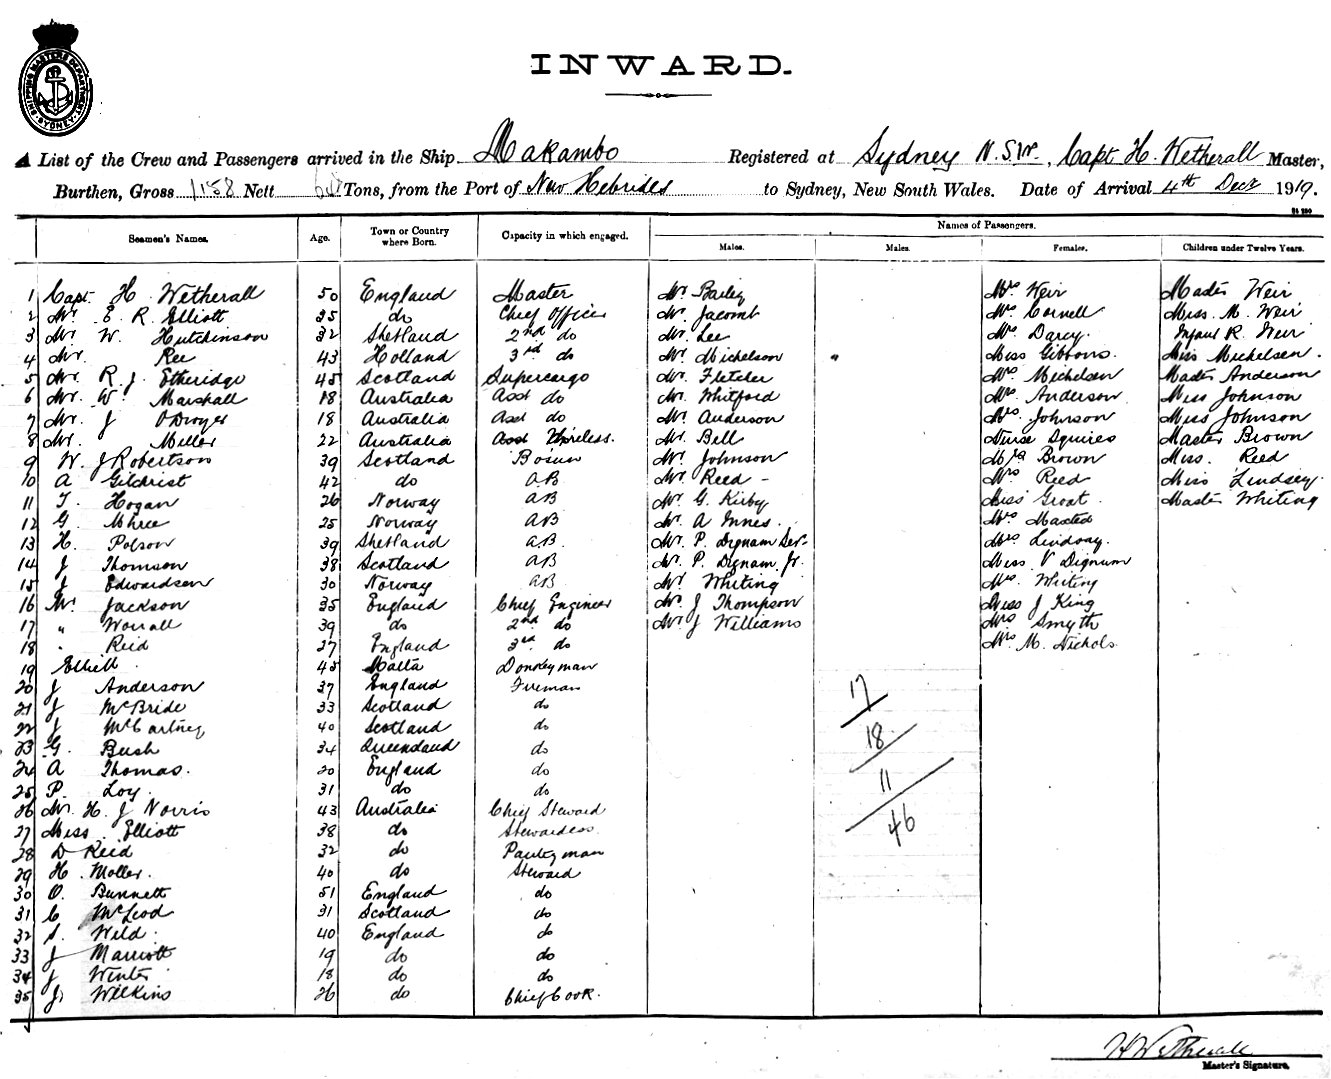 SHIPPING MASTERS DEPARTMENT
SYDNEY
INWARD.
A List of the Crew and Passengers arrived in the Ship Makambo Registered at Sydney N.S.W., Capt H. Wetherall Master,
Burthen, Gross 1158 Nett Tons, from the Port of New Hebrides to Sydney, New South Wales. Date of Arrival 4th Decr 1919.
Seamen's Names. Age. Town or Country where Born. Capacity in which engaged. Names of Passengers.
Males. Males. Females. Children under Twelve Years.
1 Capt. H. Wetherall 50 England Master Mr Bailey Mrs Weir Master Weir
2 Mr. E. R. Elliott 35 do Chief Officer Mr. Jacomb Mrs Cornell Miss. M. Weir
3 Mr. W. Hutchinson 32 Shetland 2nd do Mr. Lee Mrs. Darcy Infant R. Weir
4 Mr. Ree 43 Holland 3rd do Mr. Michelson " Miss Gibbons. Miss Michelsen.
5 Mr. R. J. Etheridge 45 Scotland Supercargo Mr. Fletcher Mrs. Michelsen Master Anderson
6 Mr. W. Marshall 18 Australia Asst do Mr. Whitford Mrs. Anderson Miss Johnson
7 Mr. J O'Dwyer 18 Australia Asst do Mr. Anderson Mrs. Johnson Miss Johnson
8 Mr. Miller 22 Australia Asst Wireless. Mr. Bell Nurse Squires Master Brown
9 W. J Robertson 39 Scotland Bosun Mr. Johnson Mrs Brown Miss. Reed
10 A Gilchrist 42 do A.B Mr. Reed - Mrs Reed Miss Lindsey
11 T. Hogan 26 Norway A.B Mr. G. Kirby Miss Groat. Master Whiting
12 G. 25 Norway A.B Mr. A Innes. Mrs. Maxted
13 H. Polson 39 Shetland A.B. Mr. P. Dignam Ser. Mrs. Lindsay.
14 J Thomson 38 Scotland A.B Mr. P. Dignam Jr. Miss. V Dignum
15 J Edwardsen 30 Norway A.B Mr Whiting Mrs. Whiting
16 Mr. Jackson 35 England Chief Engineer Mr. J Thompson Miss J King
17 " Worrall 39 do 2nd do Mr. J Williams Mrs Smyth
18 " Reid 27 England 3rd do Mrs. M. Nichols
19 45 Malta Donkeyman
20 J Anderson 37 England Fireman
21 J McBride 33 Scotland do
22 J McCartney 40 Scotland do
23 G. Bush 34 Queensland do
24 A Thomas. 20 England do
25 P. Loy. 31 do do
26 Mr. H. J Norris 43 Australia Chief Steward
27 Miss. Elliott 38 do Stewardess
28 D Reid 32 do Pantryman
29 H. Moller. 40 do Steward
30 O. Bunnett 51 England do
31 C McLeod 31 Scotland do
32 S. Wild. 40 England do
33 J Marriott 19 do do
34 J Winter 18 do do
35 J. Wilkins 26 do Chief Cook.
17
18
11
46
H Wetherall
Master's Signature.